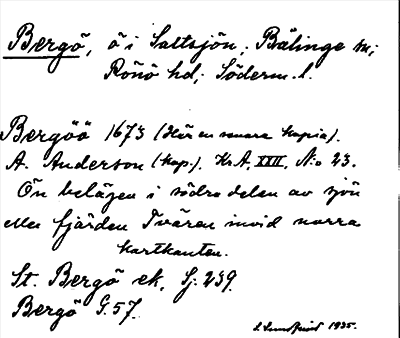 Bergö, ö i Saltsjön; Bälinge sn;
Rönö hd; Söderm. l.
Bergöö 1673 (Här en senare kopia).
A. Anderson (kop.). Kr.A, XXII, N:o 23.
Ön belägen i södra delen av sjön
eller fjärden Tvären invid norra
kartkanten.
St. Bergö ek. Sj. 239.
Bergö G. 57.
1935.